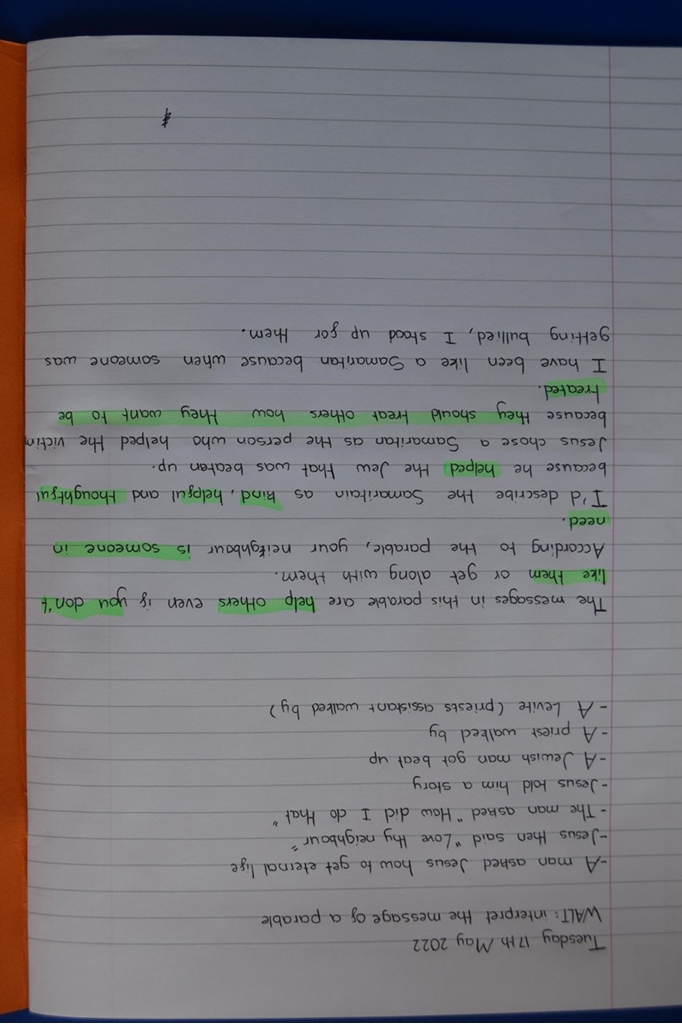 Tuesday 17th May 2022
WALT: interpret the message of a parable
-A man asked Jesus how to get eternal life
-Jesus then said "Love thy neighbour"
-The man asked "How did I do that"
-Jesus told him a story
-A Jewish man got beat up
-A priest walked by
-A Levite (priests assistant walked by)
The messages in this parable are help others even if you don't
like them or get along with them.
According to the parable, your neighbour is someone in
need.
I'd describe the Samaritain as kind, helpful and thoughtful
because he helped the Jew that was beaten up.
Jesus chose a Samaritan as the person who helped the victim
because they should treat others how they want to be
treated.
I have been like a Samaritan because when someone was
getting bullied, I stood up for them.